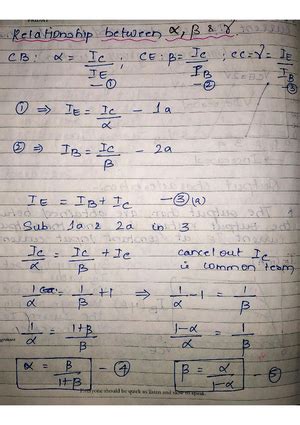 Relationship between α, β & γ
CB: α = Ic/IE —① CE: β = Ic/IB —② CC = γ = IE/IB —③
① ⇒ IE = Ic/α - 1a
② ⇒ IB = Ic/β - 2a
IE = IB + Ic —③(a)
Sub 1a & 2a in 3
Ic/α = Ic/β + Ic cancel out Ic
is common team
1/α = 1/β + 1 ⇒ 1/α - 1 = 1/β
1/α = 1+β/β 1-α/α = 1/β
α = β/1+β —④ β = α/1-α —⑤
Everyone should be quick to listen and slow to speak.